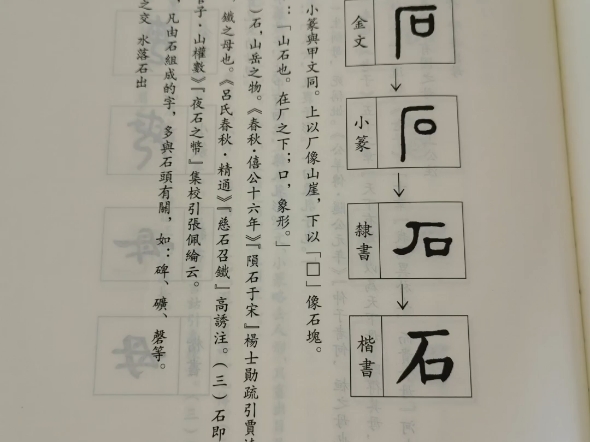 金文
石
小篆
石
隸書
石
楷書
石
小篆與甲文同。上以厂像山崖，下以「口」像石塊。
：「山石也。在厂之下；口，象形。」
）石，山岳之物。《春秋·僖公十六年》『隕石于宋』楊士勛疏引賈逵
鐵之母也。《呂氏春秋·精通》『慈石召鐵』高誘注。（三）石即
管子·山權數》『夜石之幣』集校引張佩綸云。
，凡由石組成的字，多與石頭有關，如：碑、礦、磬等。
之交 水落石出